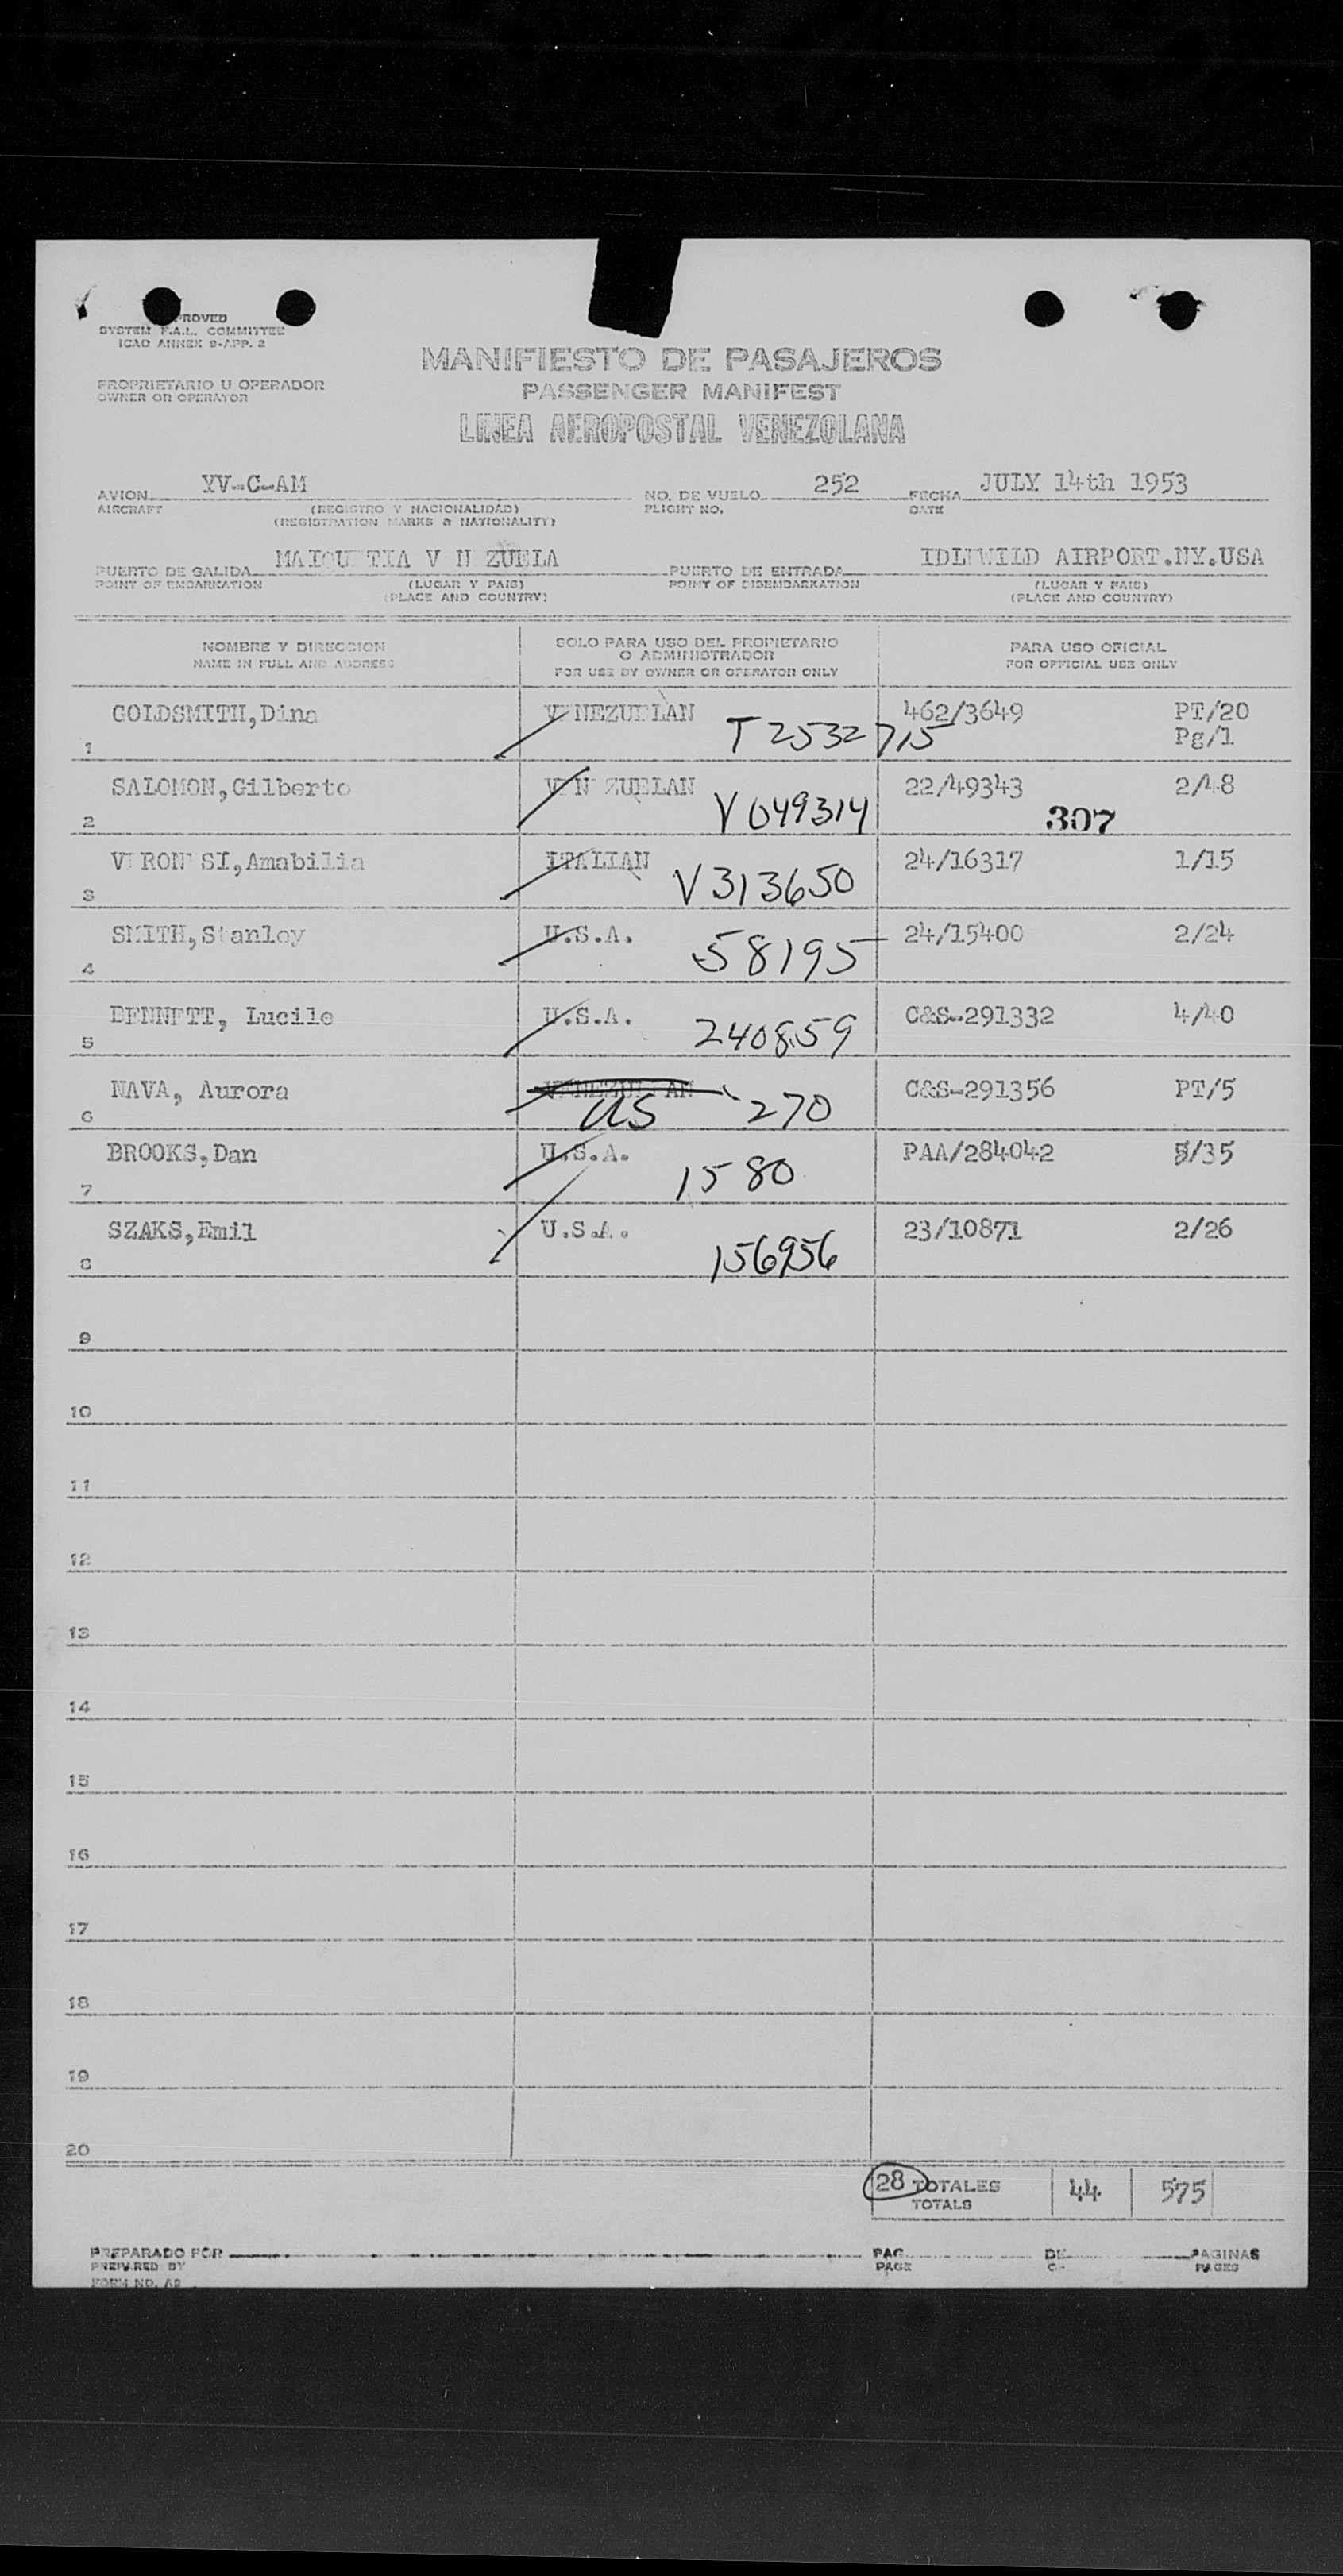 PROVED
SYSTEM F.A.L. COMMITTEE
ICAO ANNEX 9-APP. 2
MANIFIESTO DE PASAJEROS
PROPRIETARIO U OPERADOR
OWNER OR OPERATOR
PASSENGER MANIFEST
LINEA AEROPOSTAL VENEZOLANA
AVION YV-C-AM NO. DE VUELO 252 FECHA JULY 14th 1953
AIRCRAFT (REGISTRO Y NACIONALIDAD) FLIGHT NO. DATE
(REGISTRATION MARKS & NATIONALITY)
PUERTO DE SALIDA MAIQU TIA V N ZUELA PUERTO DE ENTRADA IDLEWILD AIRPORT.NY.USA
POINT OF EMBARKATION (LUGAR Y PAIS) POINT OF DISEMBARKATION (LUGAR Y PAIS)
(PLACE AND COUNTRY) (PLACE AND COUNTRY)
NOMBRE Y DIRECCION SOLO PARA USO DEL PROPIETARIO PARA USO OFICIAL
NAME IN FULL AND ADDRESS O ADMINISTRADOR FOR OFFICIAL USE ONLY
FOR USE BY OWNER OR OPERATOR ONLY
GOLDSMITH,Dina VENEZUELAN 462/3649 PT/20
1 T2532715 Pg/1
SALOMON,Gilberto V N ZUELAN 22/49343 2/48
2 V049314 307
V RON SI,Amabilia ITALIAN 24/16317 1/15
3 V313650
SMITH,Stanley U.S.A. 24/15400 2/24
4 58195
BENNETT, Lucile U.S.A. C&S-291332 4/40
5 240859
NAVA, Aurora VENEZUELAN C&S-291356 PT/5
6 US 270
BROOKS,Dan U.S.A. PAA/284042 5/35
7 1580
SZAKS,Emil U.S.A. 23/10871 2/26
8 156956
9
10
11
12
13
14
15
16
17
18
19
20
28 TOTALES 44 575
TOTALS
PREPARADO POR PAG. DE PAGINAS
PREPARED BY PAGE OF PAGES
FORM NO. A2